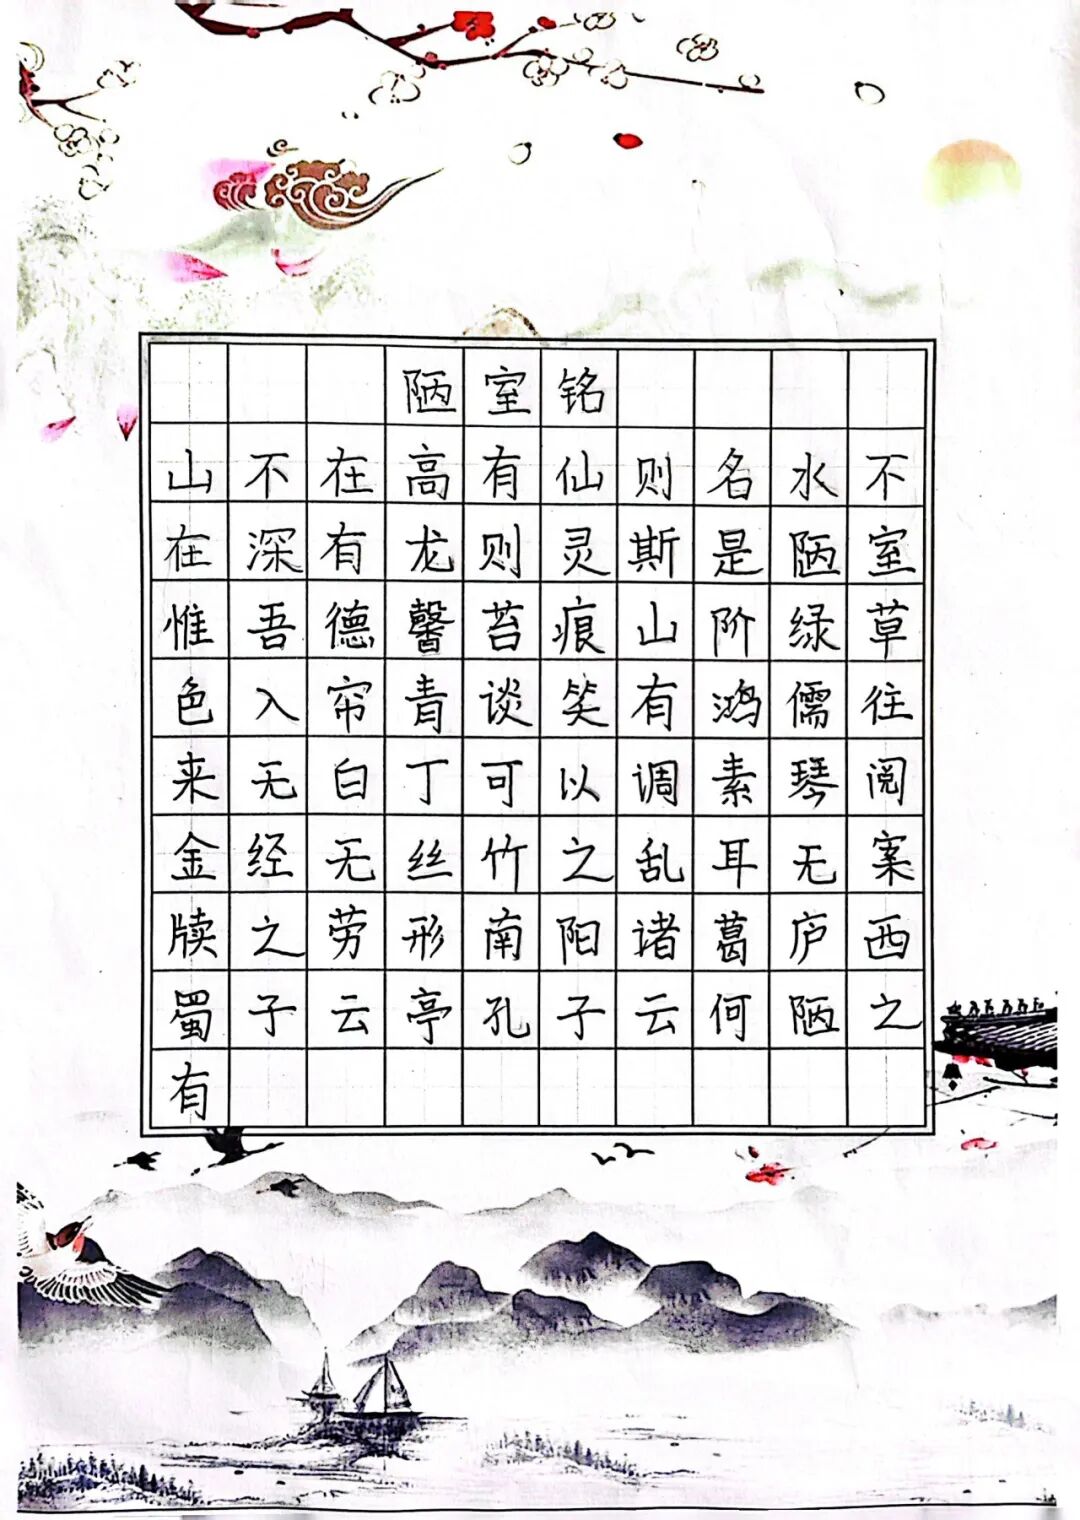 陋室铭
山不在高有仙则名水不
在深有龙则灵斯是陋室
惟吾德馨苔痕山阶绿草
色入帘青谈笑有鸿儒往
来无白丁可以调素琴阅
金经无丝竹之乱耳无案
牍之劳形南阳诸葛庐西
蜀子云亭孔子云何陋之
有